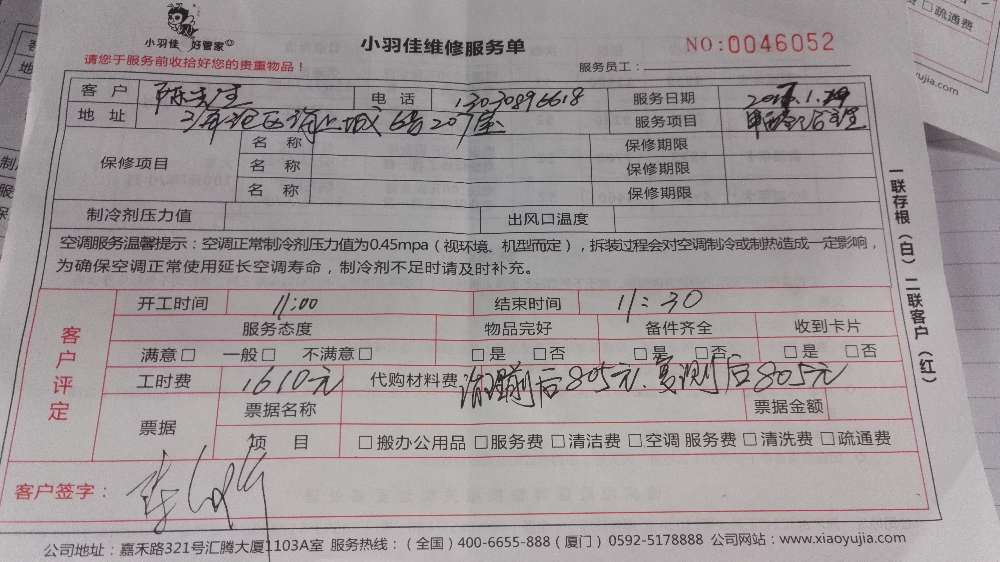 小羽佳 好管家
小羽佳维修服务单
NO:0046052
请您于服务前收拾好您的贵重物品！
服务员工：
客户 陈先生 电话 13030896618 服务日期
地址 海沧区海上城 6号207室 服务项目 甲醛治理
保修项目 名称 保修期限
名称 保修期限
名称 保修期限
制冷剂压力值 出风口温度
空调服务温馨提示：空调正常制冷剂压力值为0.45mpa（视环境、机型而定），拆装过程会对空调制冷或制热造成一定影响，
为确保空调正常使用延长空调寿命，制冷剂不足时请及时补充。
客户评定
开工时间 11:00 结束时间 11:30
服务态度 物品完好 备件齐全 收到卡片
满意□ 一般□ 不满意□ □是 □否 □是 □否 □是 □否
工时费 1610元 代购材料费 治理前后805元、复测后805元
票据 票据名称 票据金额
项目 □搬办公用品 □服务费 □清洁费 □空调 服务费 □清洗费 □疏通费
客户签字：
公司地址：嘉禾路321号汇腾大厦1103A室 服务热线：（全国）400-6655-888（厦门）0592-5178888 公司网站：www.xiaoyujia.com
一联存根（白）二联客户（红）
□疏通费
yujia.com